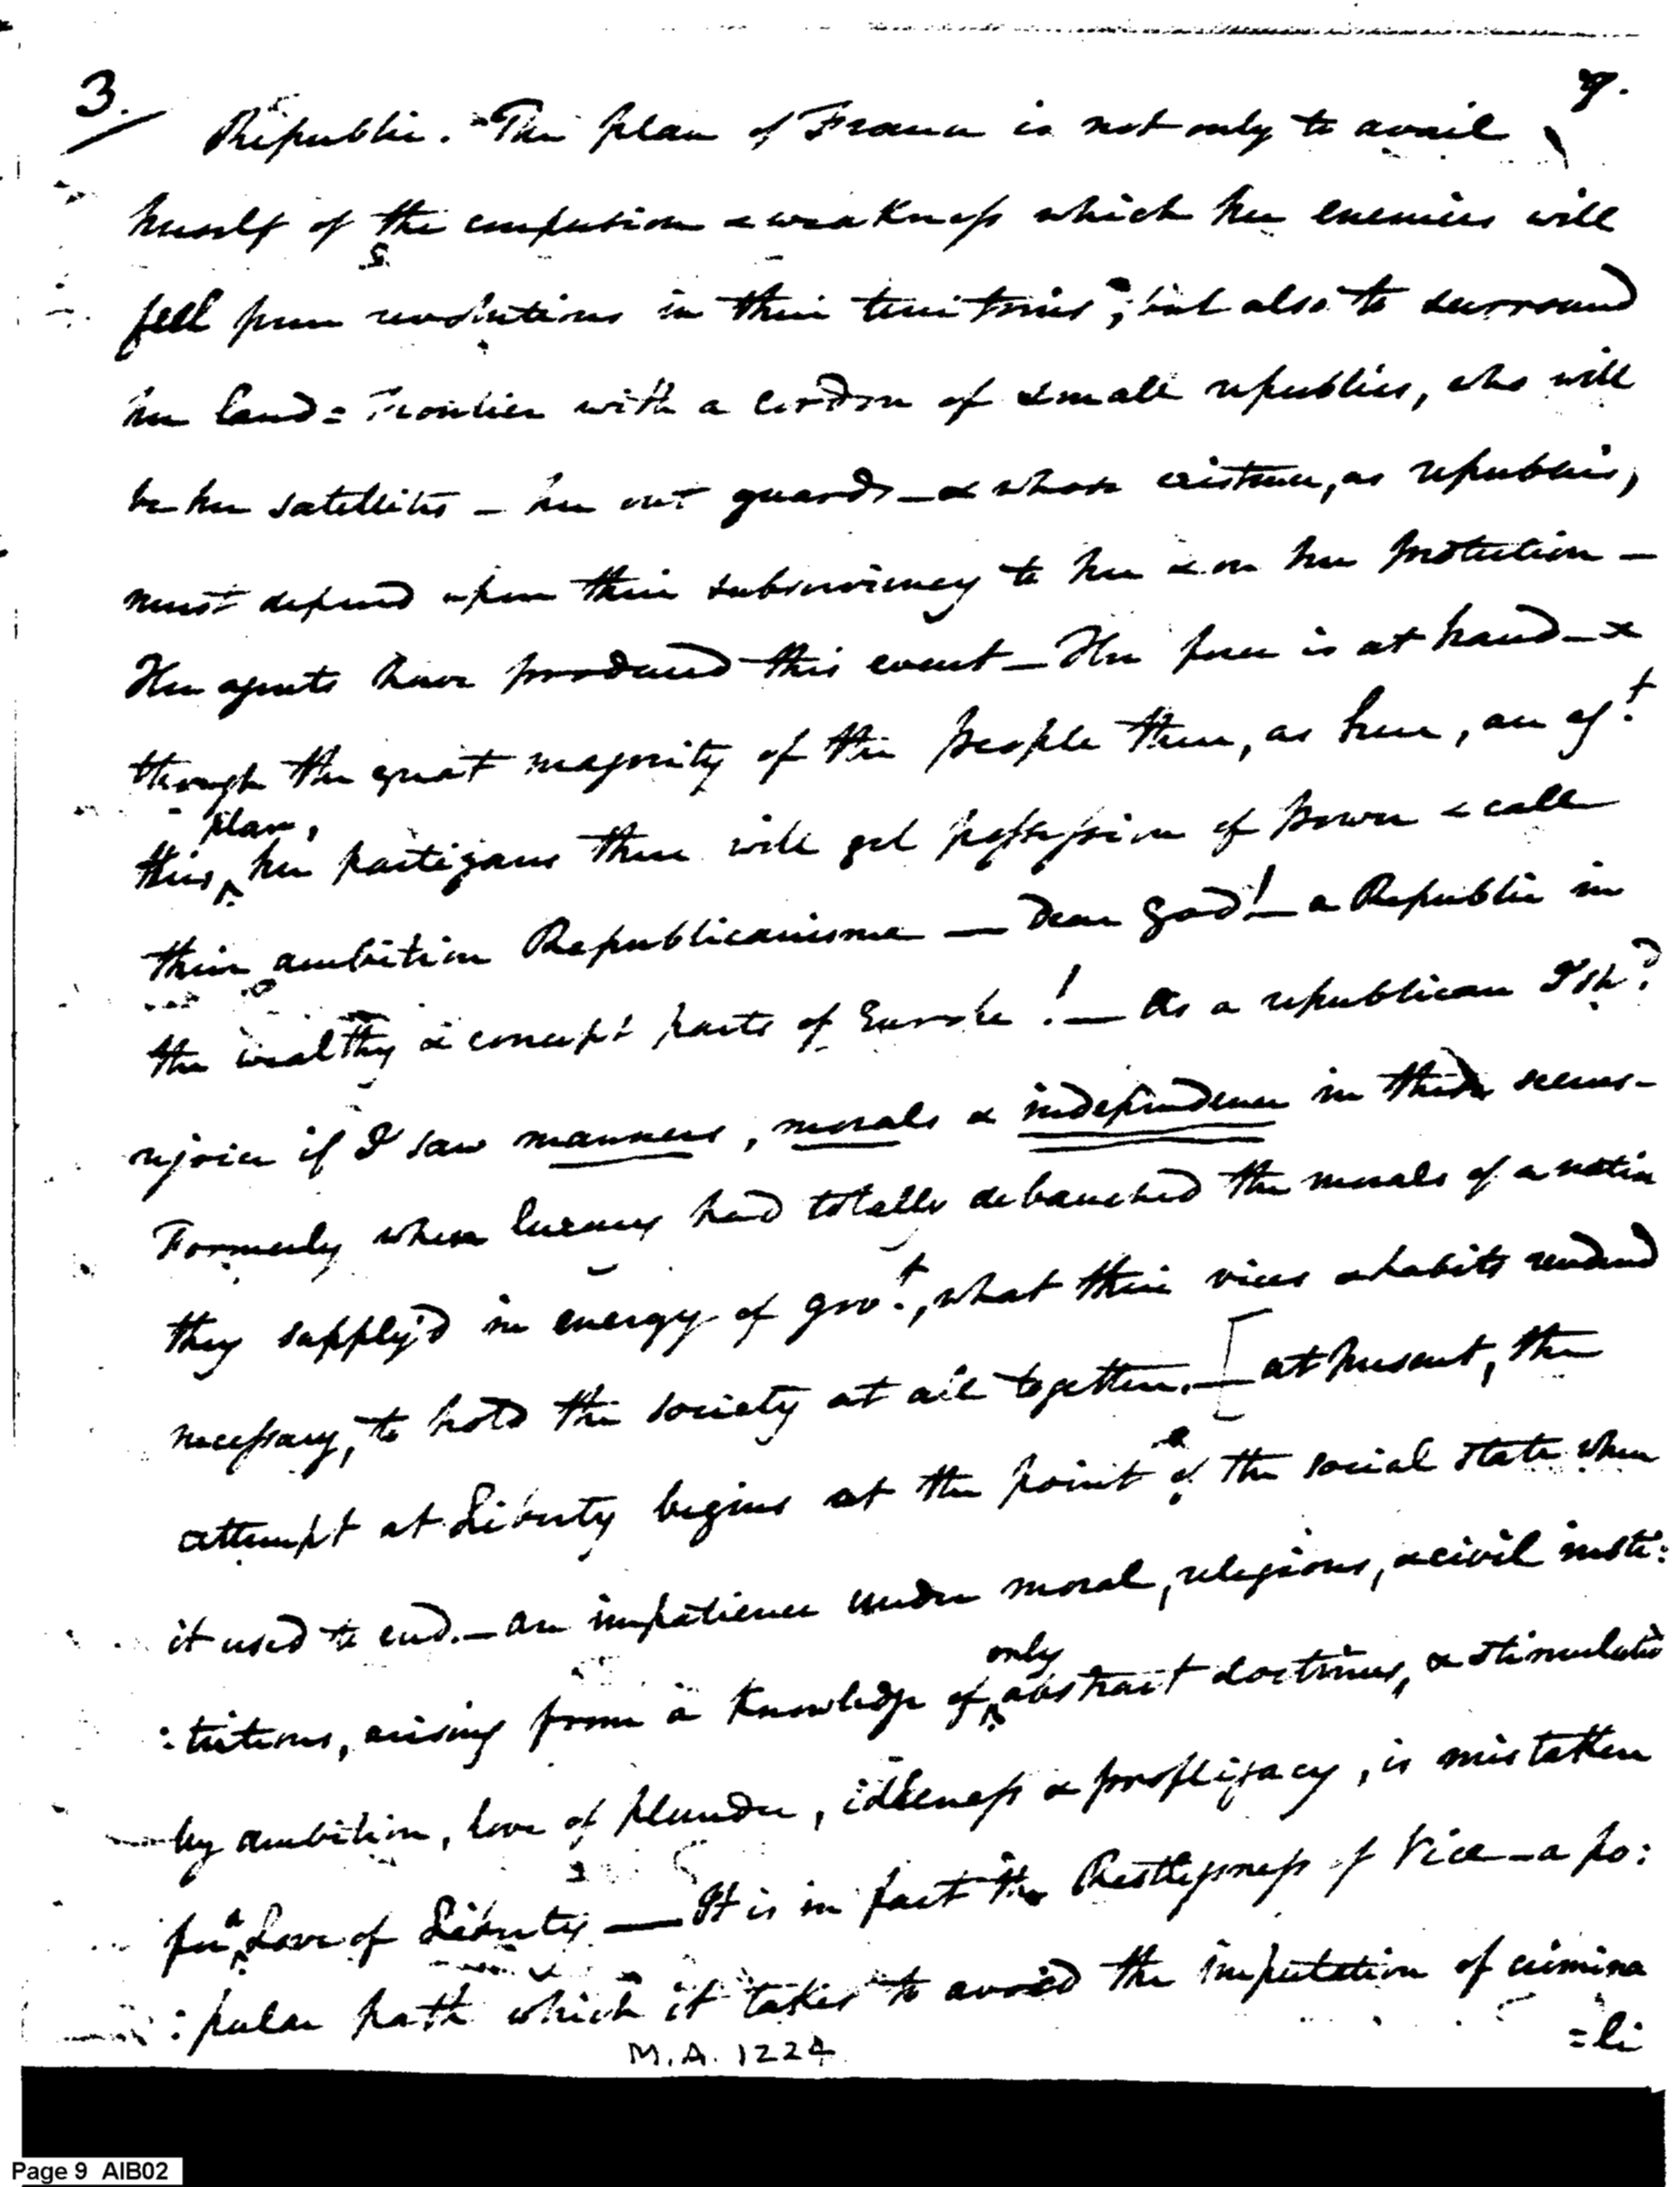 3.
9.
Republic. The plan of France is not only to avail
herself of the confusion & weakness which her enemies will
feel from revolutions in their territories; but also to surround
her land = Frontier with a cordon of small republics, who will
be her satellites – her out guards – & whose existence, as republics,
must depend upon their subserviency to her & on her protection –
Her agents have produced this event – Her force is at hand – &
though the great majority of the people there, as here, are ag.t
plan,
this her partizans there will get possession of power & call
their ambition Republicanisme — Dear God! – a Republic in
the wealthy & corrupt parts of Europe! — As a republican I sh.d
rejoice if I saw manners, morals & independence in their scenes –
Formerly when luxury had totally debauched the morals of a nation
they supply'd in energy of gov.t, what their vices & habits rendered
necessary, to hold the society at all together. — [at present, the
attempt at Liberty begins at the point of the social state when
it used to end. – an impatience under moral, religious, & civil insti:
only
:tutions, arising from a knowledge of abstract doctrines, & stimulated
by ambition, love of plunder, idleness & profligacy, is mistaken
for a Love of Liberty — It is in fact the Restlessness of Vice – a po:
:pular path which it takes to avoid the imputation of crimina
=li
M.A. 1224
Page 9 AIB02